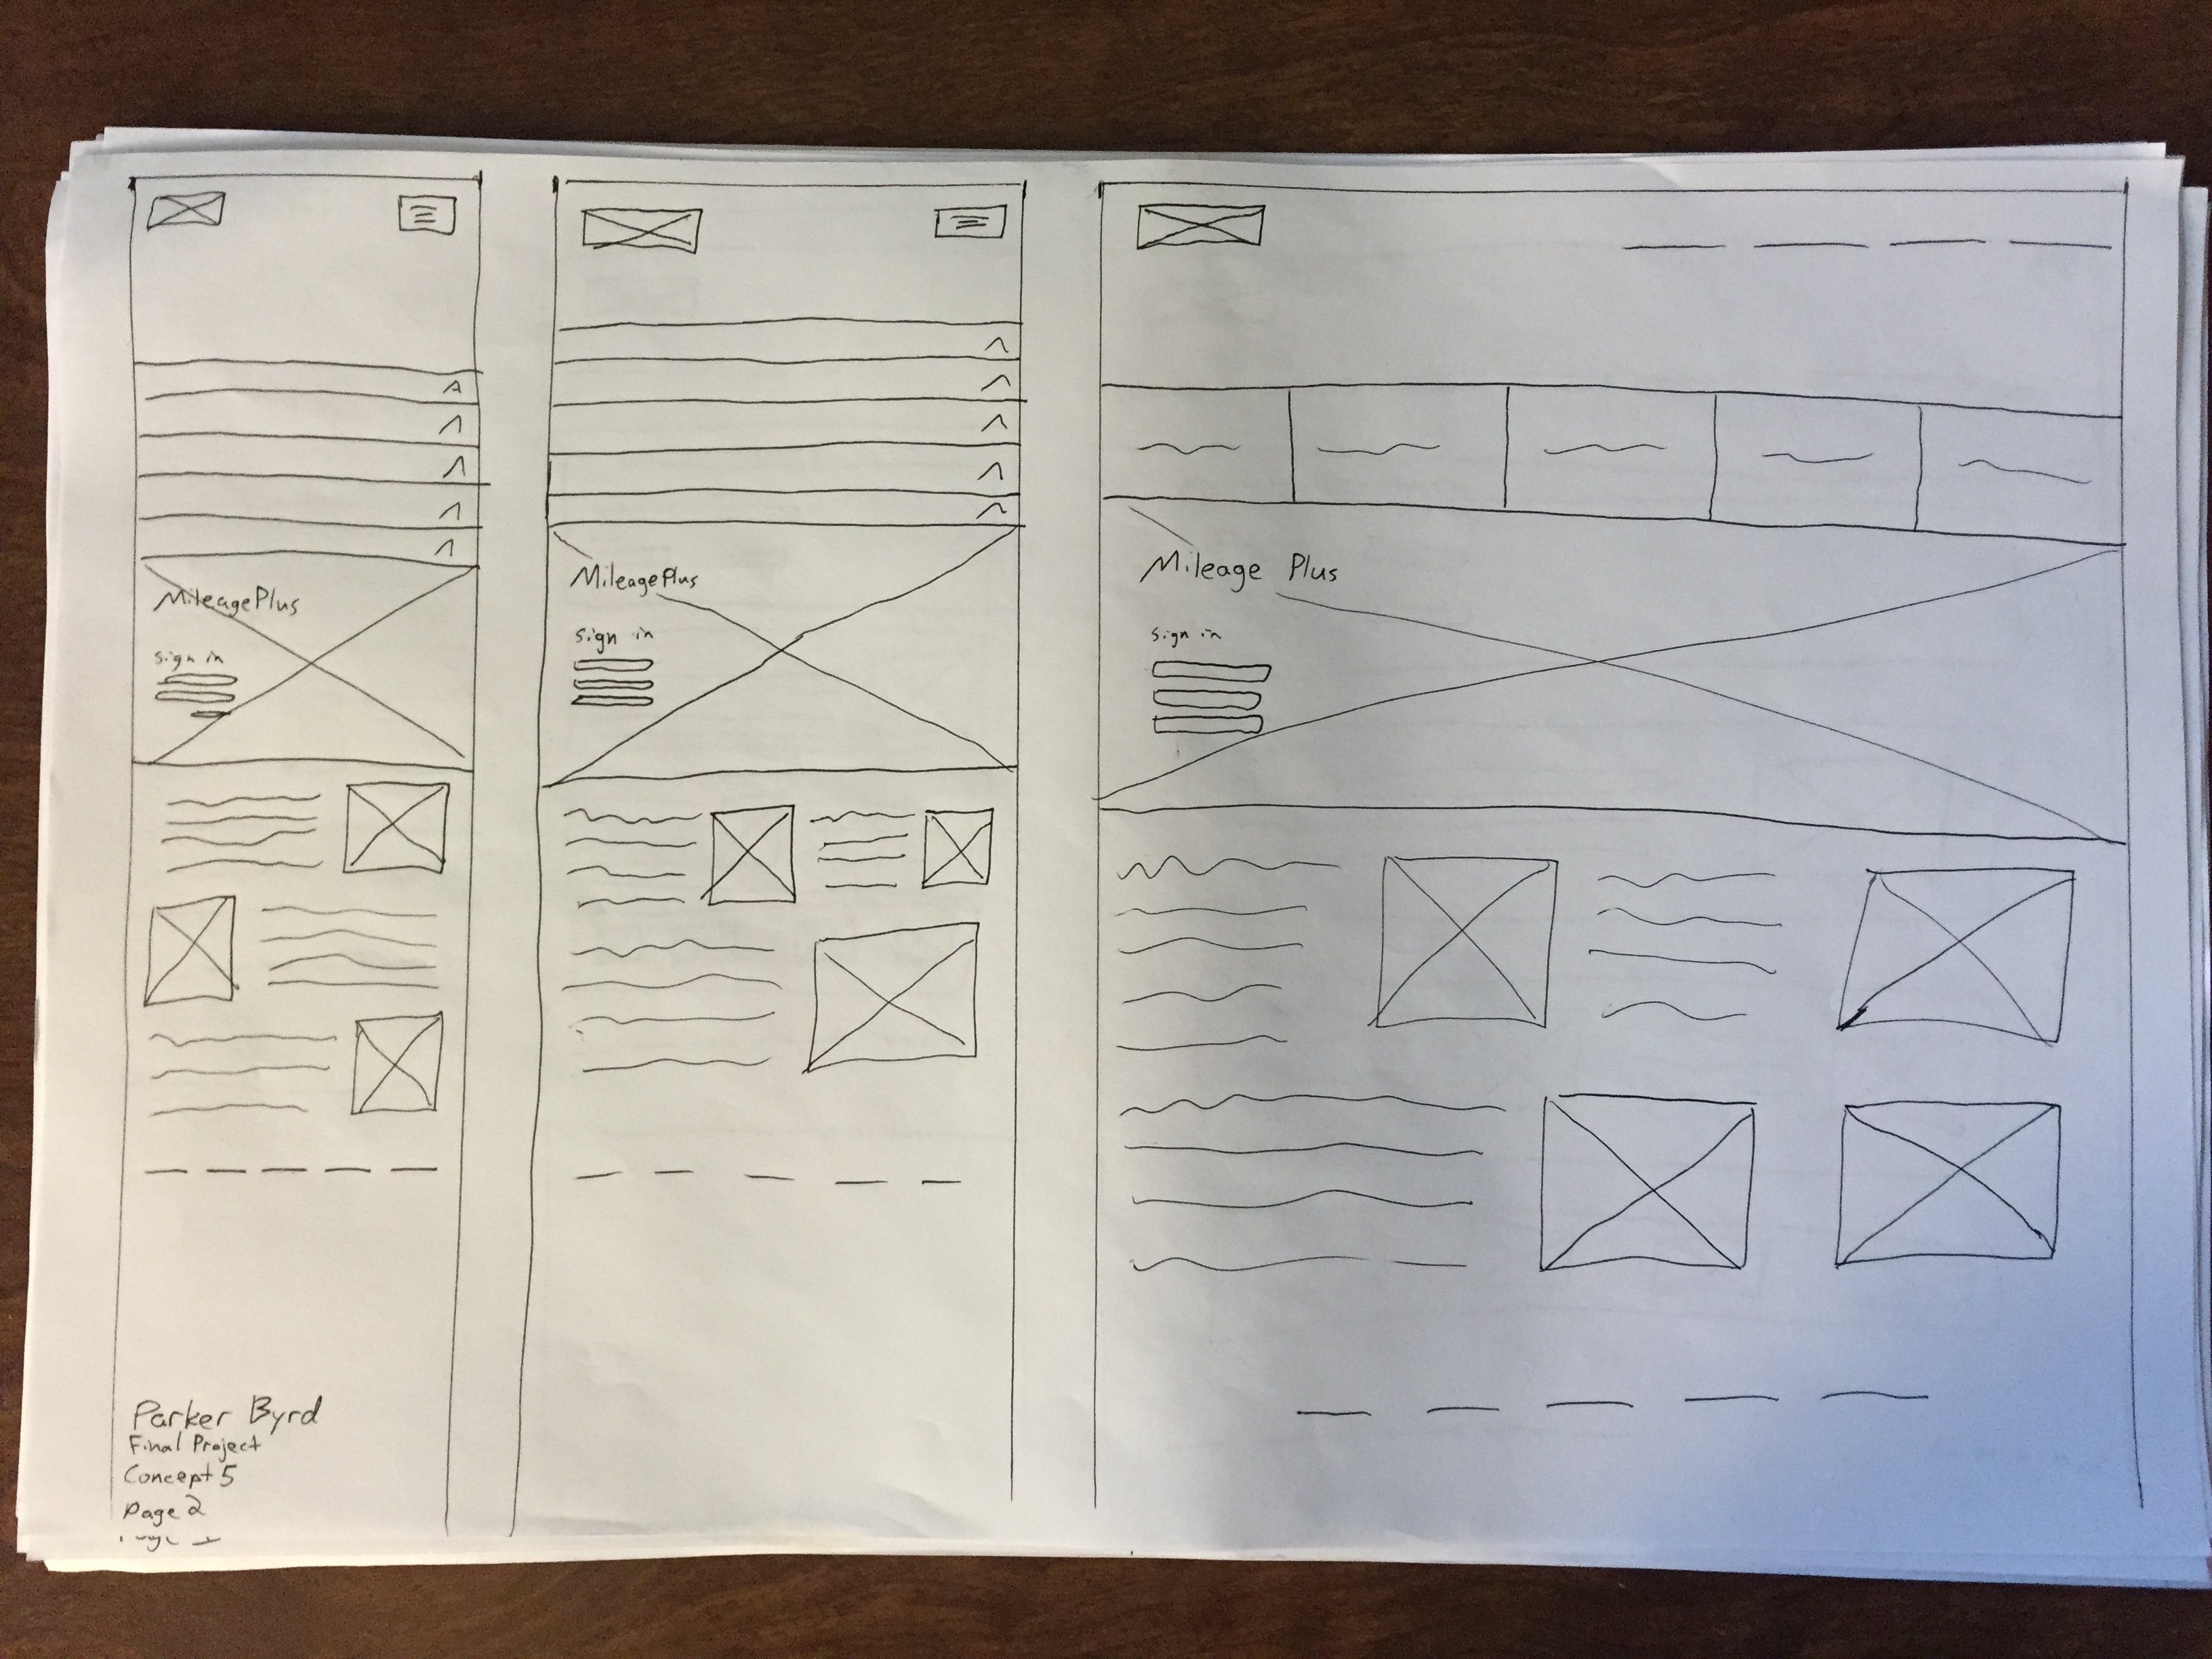 MileagePlus
sign in
MileagePlus
sign in
Mileage Plus
sign in
Parker Byrd
Final Project
Concept 5
Page 2